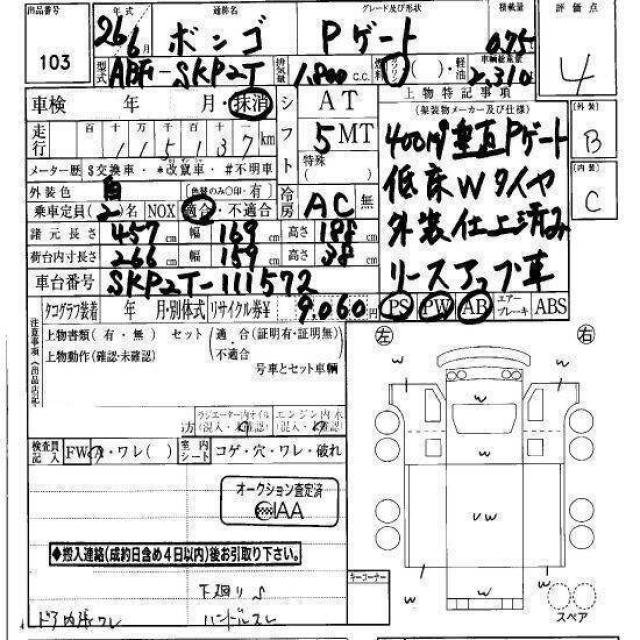 出品番号 103
年式 26年6月
通称名 ボンゴ
グレード及び形状 Pゲート
積載量 0.75t
評価点 4
型式 ABF-SKP2T
排気量 1,800 c.c.
燃料 ガソリン ( )・軽油
車輌総重量 2,310
車検 年 月・抹消
シフト AT 5MT 特殊( )
上物特記事項
(架装物メーカー及び仕様)
走行 百十万千百十
115137km
400㎏垂直Pゲート
低床Wタイヤ
外装仕上済み
リースアップ車
[外装] B
[内装] C
メーター歴 $交換車・*改竄車・#不明車
外装色 白 (色替のみ○印・有)
冷房 AC 無
乗車定員(2)名 NOX 適合・不適合
諸元長さ 457cm 幅 169cm 高さ 198cm
荷台内寸長さ 266cm 幅 159cm 高さ 38cm
車台番号 SKP2T-111572
タコグラフ装着 年 月・別体式 リサイクル券¥ 9,060円
PS PW AB エアーブレーキ ABS
注意事項(出品店記入)
上物書類(有・無) セット(適合(証明有・証明無)・不適合
上物動作(確認・未確認) 号車とセット車輌
左 右
ラジエーター内オイル(混入・未確認) エンジン内水(混入・未確認)
検査員記入 FWA・ワレ( ) 室内シート コゲ・穴・ワレ・破れ
オークション査定済
CIAA
◆搬入連絡(成約日含め4日以内)後お引取り下さい。
下廻りS
ドア内張ワレ ハンドルスレ
キーコーナー
w w
w
w w
w
vw
w w
w
スペア